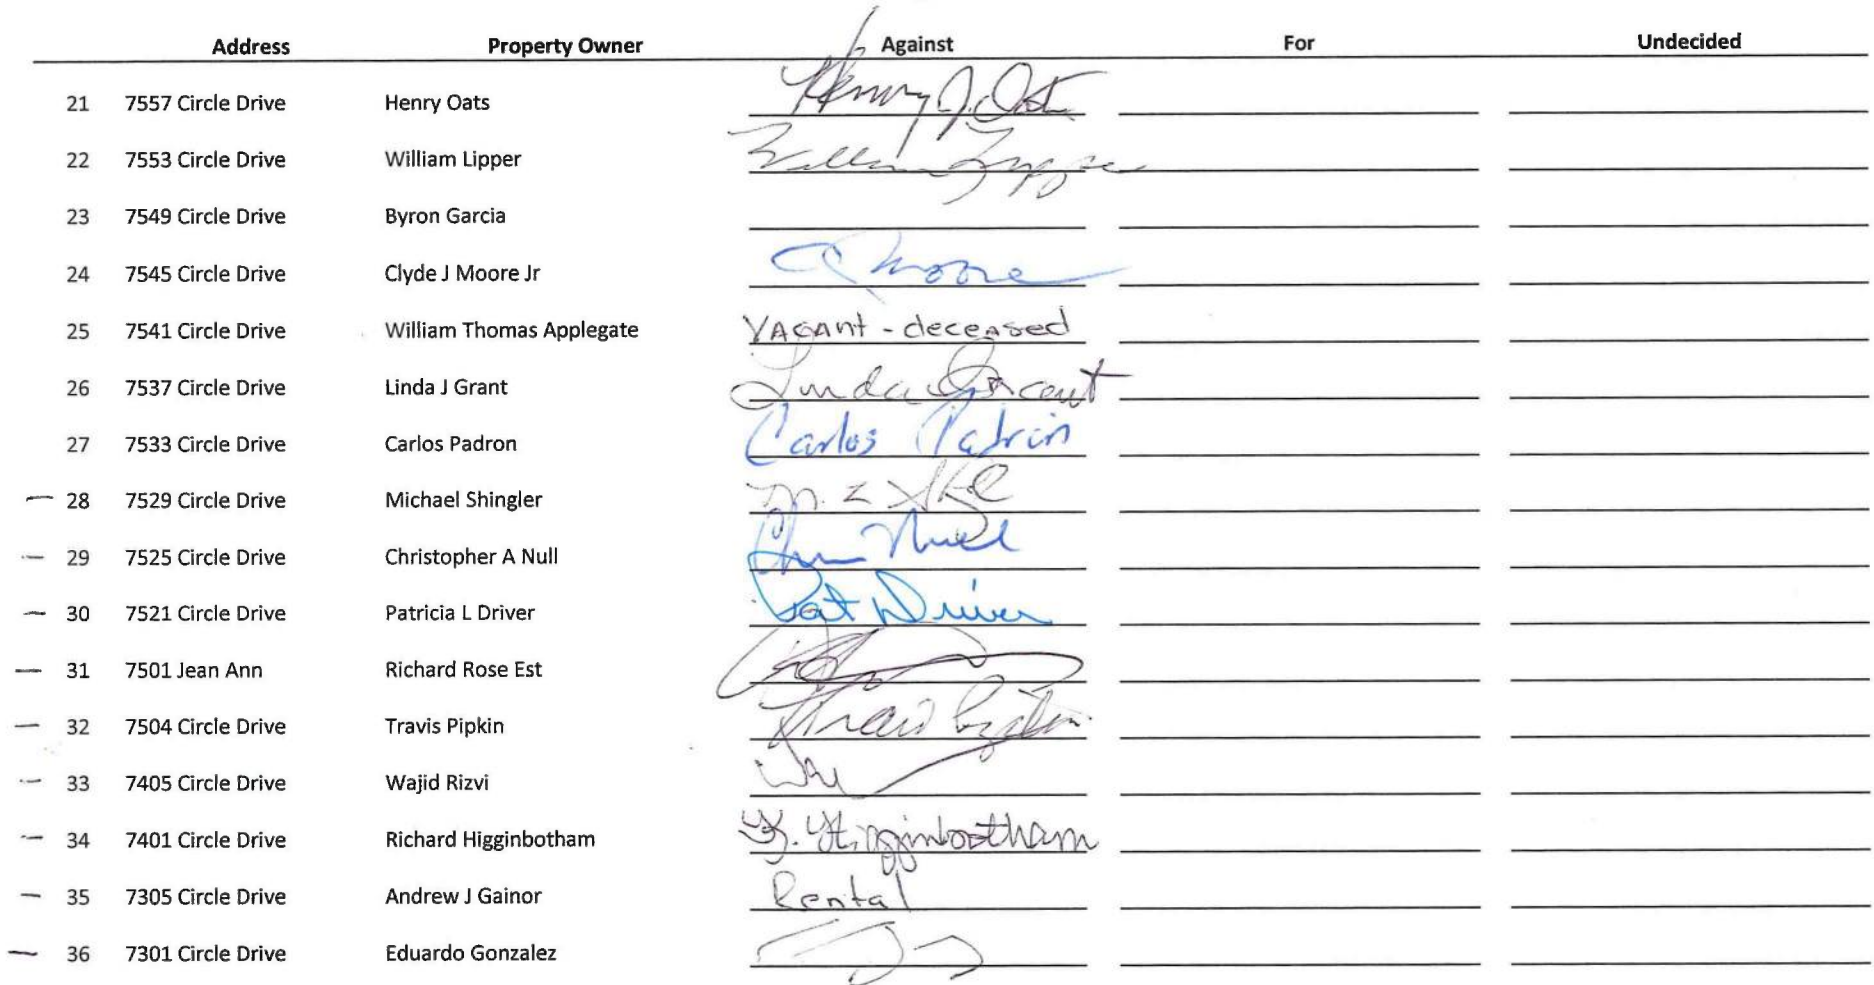 Address Property Owner Against For Undecided
21 7557 Circle Drive Henry Oats Henry J. Oats
22 7553 Circle Drive William Lipper William Lipper
23 7549 Circle Drive Byron Garcia
24 7545 Circle Drive Clyde J Moore Jr CJ Moore
25 7541 Circle Drive William Thomas Applegate VACANT - deceased
26 7537 Circle Drive Linda J Grant Linda J Grant
27 7533 Circle Drive Carlos Padron Carlos Padron
28 7529 Circle Drive Michael Shingler
29 7525 Circle Drive Christopher A Null Chris Null
30 7521 Circle Drive Patricia L Driver Pat Driver
31 7501 Jean Ann Richard Rose Est
32 7504 Circle Drive Travis Pipkin Travis Pipkin
33 7405 Circle Drive Wajid Rizvi
34 7401 Circle Drive Richard Higginbotham R. Higginbotham
35 7305 Circle Drive Andrew J Gainor Rental
36 7301 Circle Drive Eduardo Gonzalez